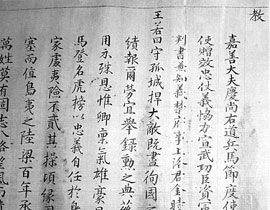 教
嘉善大夫慶尚右道兵馬節度使
使贈效忠仗義協力宣武功臣資憲
判書兼知義禁府事上洛君金時
王若曰守孤城捍大敵既盡徇國
績報爾勞宜舉錄勳之典
用示殊恩惟卿稟氣雄豪
馬登名虎榜以忠義自任於
家處夷險不貳其操頃緣
塞而值島夷之陸梁百年
萬姓莫有固志八路